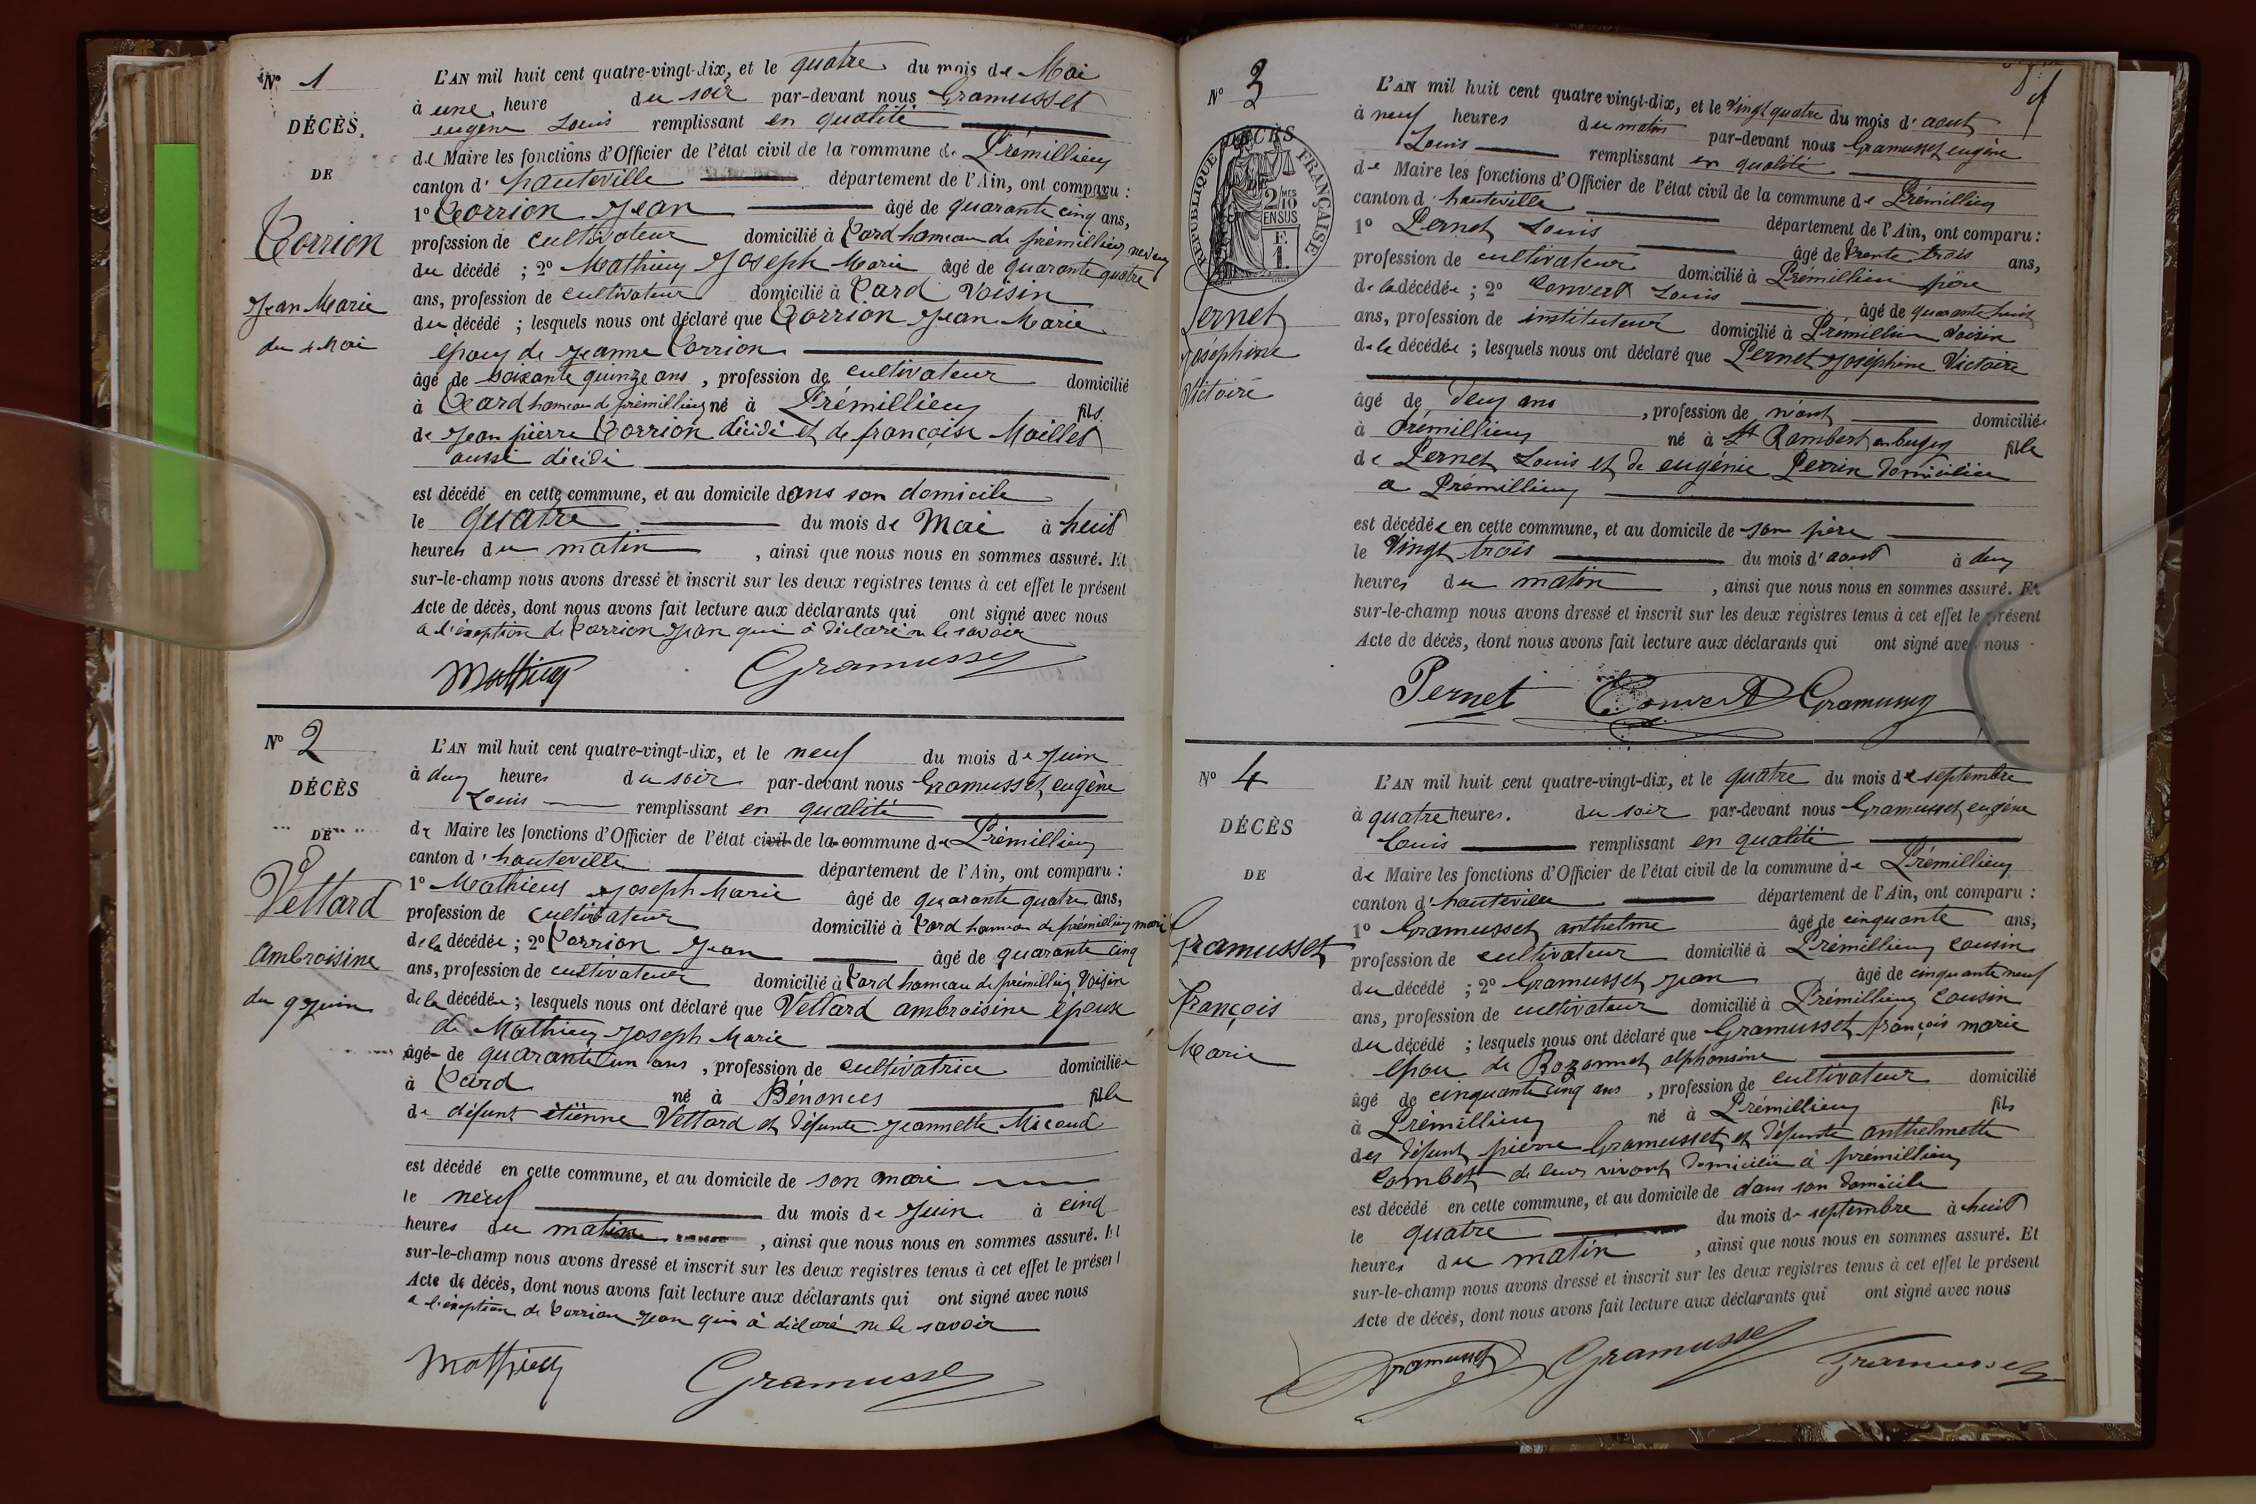 N° 1
DÉCÈS
DE
Corrion
Jean Marie
du 4 Mai
L'AN mil huit cent quatre-vingt-dix, et le quatre du mois de Mai
à une heure du soir par-devant nous Gramusset
eugène Louis remplissant en qualité
de Maire les fonctions d'Officier de l'état civil de la commune de Prémillieu
canton d' hauteville département de l'Ain, ont comparu :
1° Corrion Jean âgé de quarante cinq ans,
profession de cultivateur domicilié à Card hameau de prémillieu neveu
du décédé ; 2° Mathieu Joseph Marie âgé de quarante quatre
ans, profession de cultivateur domicilié à Card Voisin
du décédé ; lesquels nous ont déclaré que Corrion Jean Marie
époux de Jeanne Corrion
âgé de soixante quinze ans , profession de cultivateur domicilié
à Card hameau de prémillieu né à Prémillieu fils
de Jean pierre Corrion décédé et de françoise Maillet
aussi décédé
est décédé en cette commune, et au domicile dans son domicile
le quatre du mois de Mai à huit
heures du matin , ainsi que nous nous en sommes assuré. Et
sur-le-champ nous avons dressé et inscrit sur les deux registres tenus à cet effet le présent
Acte de décès, dont nous avons fait lecture aux déclarants qui ont signé avec nous
a l'éxeption de Corrion Jean qui à déclaré ne le savoir
Mathieu Gramusset
N° 2
DÉCÈS
DE
Vettard
Ambroisine
du 9 Juin
L'AN mil huit cent quatre-vingt-dix, et le neuf du mois de Juin
à deux heures du soir par-devant nous Gramusset eugène
Louis remplissant en qualité
de Maire les fonctions d'Officier de l'état civil de la commune de Prémillieu
canton d' hauteville département de l'Ain, ont comparu :
1° Mathieu Joseph Marie âgé de quarante quatre ans,
profession de cultivateur domicilié à Card hameau de prémillieu mari
de la décédée ; 2° Corrion Jean âgé de quarante cinq
ans, profession de cultivateur domicilié à Card hameau de prémillieu Voisin
de la décédée ; lesquels nous ont déclaré que Vettard ambroisine épouse
de Mathieu Joseph Marie
âgé de quarante un ans , profession de cultivatrice domiciliée
à Card né à Bénonces fille
de défunt étiënne Vettard et défunte Jeannette Micoud
est décédé en cette commune, et au domicile de son mari
le neuf du mois de Juin à cinq
heures du matin , ainsi que nous nous en sommes assuré. Et
sur-le-champ nous avons dressé et inscrit sur les deux registres tenus à cet effet le présent
Acte de décès, dont nous avons fait lecture aux déclarants qui ont signé avec nous
a l'éxeption de Corrion Jean qui à déclaré ne le savoir
Mathieu Gramusset
N° 3
DÉCÈS
RÉPUBLIQUE FRANÇAISE
2/10 MES
EN SUS
F.
1.
Pernet
Joséphine
Victoire
L'AN mil huit cent quatre vingt-dix, et le Vingt quatre du mois d' aout
à neuf heures du matin par-devant nous Gramusset eugène
Louis remplissant en qualité
de Maire les fonctions d'Officier de l'état civil de la commune de Prémillieu
canton d' hauteville département de l'Ain, ont comparu :
1° Pernet Louis âgé de trente trois ans,
profession de cultivateur domicilié à Prémillieu père
de la décédée ; 2° Convert Louis âgé de quarante huit
ans, profession de instituteur domicilié à Prémillieu Voisin
de la décédée ; lesquels nous ont déclaré que Pernet Joséphine Victoire
âgé de deux ans , profession de néant domiciliée
à Prémillieu né à St Rambert en bugey fille
de Pernet Louis et de eugénie Perrin domicilié
a Premillieu
est décédée en cette commune, et au domicile de son père
le Vingt trois du mois d' aout à deux
heures du matin , ainsi que nous nous en sommes assuré. Et
sur-le-champ nous avons dressé et inscrit sur les deux registres tenus à cet effet le présent
Acte de décès, dont nous avons fait lecture aux déclarants qui ont signé avec nous
Pernet Convert Gramusset
N° 4
DÉCÈS
DE
Gramusset
François
Marie
L'AN mil huit cent quatre-vingt-dix, et le quatre du mois de septembre
à quatre heures. du soir par-devant nous Gramusset eugène
Louis remplissant en qualité
de Maire les fonctions d'Officier de l'état civil de la commune de Prémillieu
canton d' hauteville département de l'Ain, ont comparu :
1° Gramusset anthelme âgé de cinquante ans,
profession de cultivateur domicilié à Prémillieu cousin
du décédé ; 2° Gramusset Jean âgé de cinquante neuf
ans, profession de cultivateur domicilié à Prémillieu Cousin
du décédé ; lesquels nous ont déclaré que Gramusset françois marie
époux de Rozonnet alphonsine
âgé de cinquante cinq ans , profession de cultivateur domicilié
à Prémillieu né à Prémillieu fils
des défunt pierre Gramusset et défunte anthelmette
Combet de leur vivant domicilié à prémillieu
est décédé en cette commune, et au domicile de dans son domicile
le quatre du mois de septembre à huit
heures du matin , ainsi que nous nous en sommes assuré. Et
sur-le-champ nous avons dressé et inscrit sur les deux registres tenus à cet effet le présent
Acte de décès, dont nous avons fait lecture aux déclarants qui ont signé avec nous
Gramusset Gramusset Gramusset